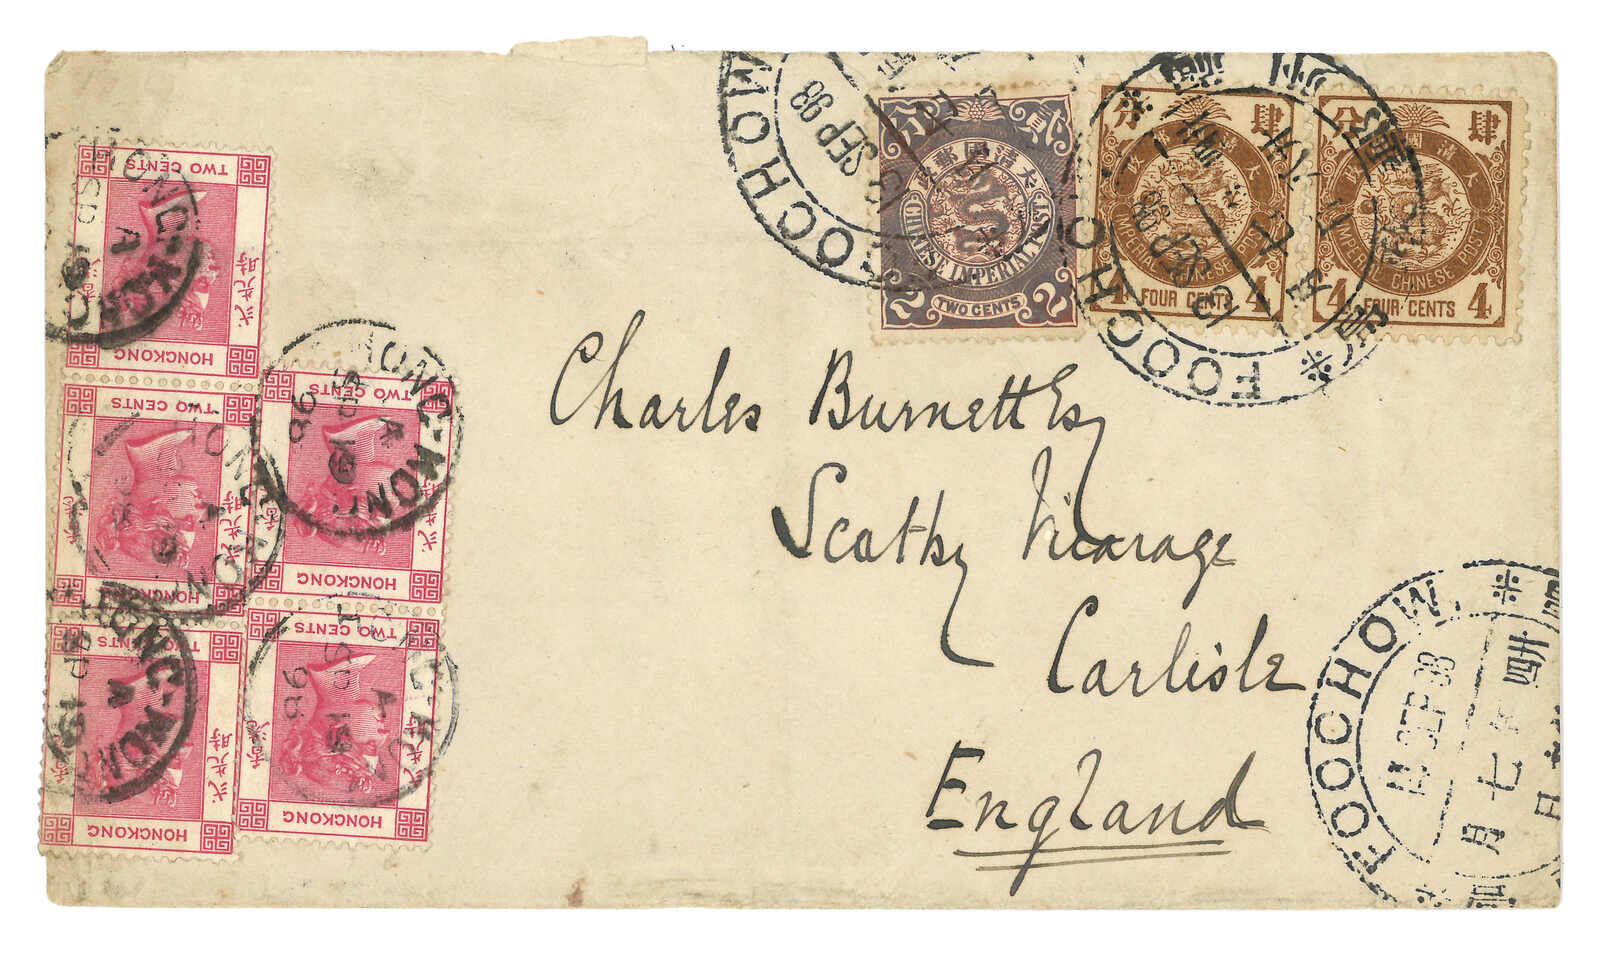 FOOCHOW
SEP 98
貳 分
大清國郵政
CHINESE IMPERIAL POST
2 TWO CENTS 2
肆 分
大清國郵政
IMPERIAL CHINESE POST
4 FOUR CENTS 4
肆 分
大清國郵政
IMPERIAL CHINESE POST
4 FOUR CENTS 4
FOOCHOW
SEP 98
Charles Burnett Esq
Scotby Vicarage
Carlisle
England
FOOCHOW
SEP 98
七月
TWO CENTS
HONGKONG
TWO CENTS
HONGKONG
TWO CENTS
HONGKONG
TWO CENTS
HONGKONG
TWO CENTS
HONGKONG
HONG-KONG
A
HONG-KONG
A
SP 19
98
HONG-KONG
A
HONG-KONG
A
SP 19
HONG-KONG
A
SP 19
98